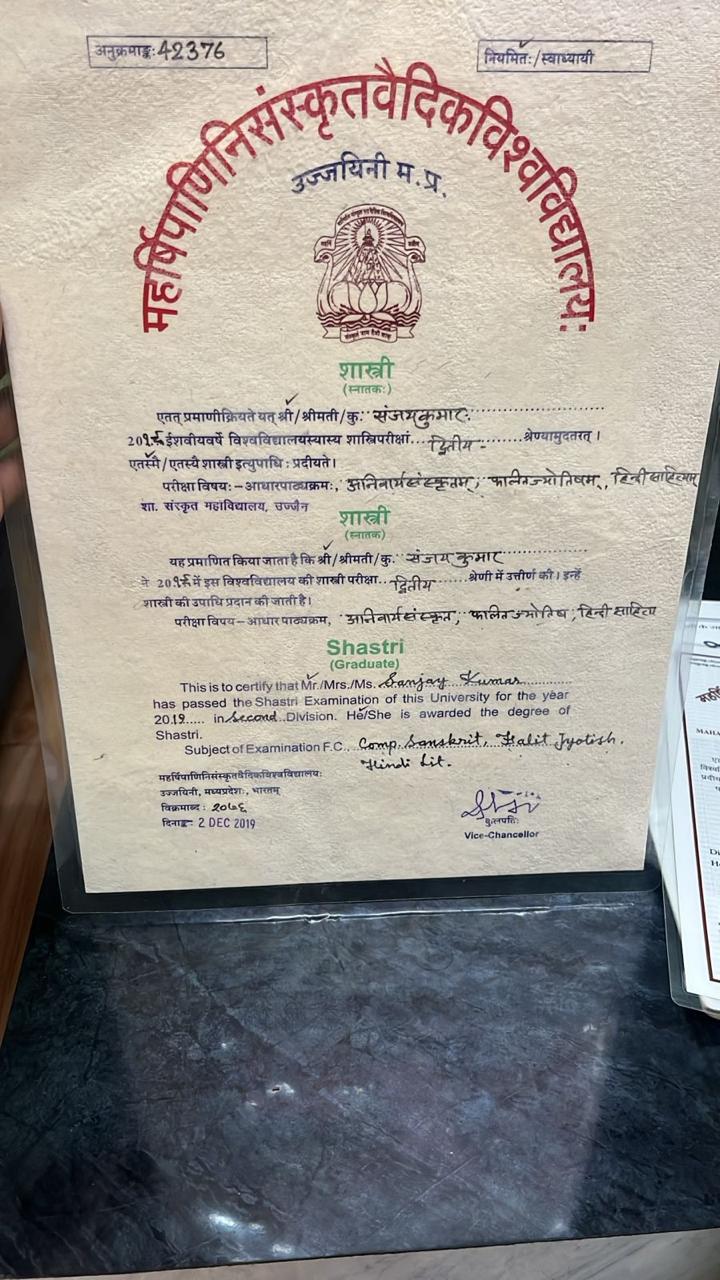 अनुक्रमाङ्कः 42376
नियमितः/स्वाध्यायी
महर्षिपाणिनिसंस्कृतवैदिकविश्वविद्यालयः
उज्जयिनी म.प्र.
शास्त्री
(स्नातकः)
एतत् प्रमाणीक्रियते यत् श्री/श्रीमती/कु. संजयकुमारः
ईशवीयवर्षे विश्वविद्यालयस्यास्य शास्त्रिपरीक्षां द्वितीय श्रेण्यामुदतरत् ।
एतस्मै/एतस्यै शास्त्री इत्युपाधिः प्रदीयते।
परीक्षा विषयः - आधारपाठ्यक्रमः, अनिवार्यसंस्कृतम्, फलितज्योतिषम्, हिन्दीसाहित्यम्
शा. संस्कृत महाविद्यालय, उज्जैन
शास्त्री
(स्नातक)
यह प्रमाणित किया जाता है कि श्री/श्रीमती/कु. संजय कुमार
ने में इस विश्वविद्यालय की शास्त्री परीक्षा द्वितीय श्रेणी में उत्तीर्ण की। इन्हें
शास्त्री की उपाधि प्रदान की जाती है।
परीक्षा विषय - आधार पाठ्यक्रम, अनिवार्यसंस्कृत, फलितज्योतिष, हिन्दी साहित्य
Shastri
(Graduate)
This is to certify that Mr./Mrs./Ms. Sanjay Kumar
has passed the Shastri Examination of this University for the year
2019 in Second Division. He/She is awarded the degree of
Shastri.
Subject of Examination F.C., Comp. Sanskrit, Falit Jyotish,
Hindi Lit.
महर्षिपाणिनिसंस्कृतवैदिकविश्वविद्यालयः
उज्जयिनी, मध्यप्रदेशः, भारतम्
विक्रमाब्दः २०७६
दिनाङ्कः 2 DEC 2019
कुलपतिः
Vice-Chancellor